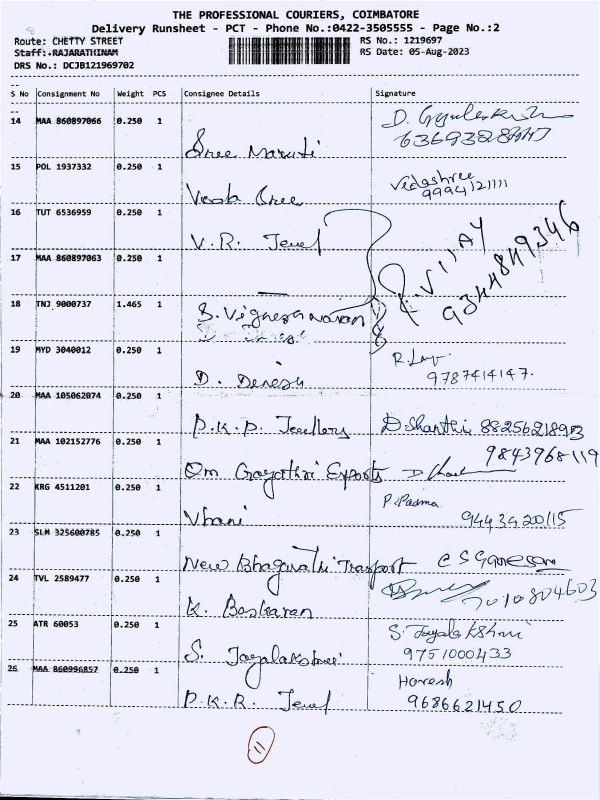 THE PROFESSIONAL COURIERS, COIMBATORE
Delivery Runsheet - PCT - Phone No.:0422-3505555 - Page No.:2
Route: CHETTY STREET RS No.: 1219697
Staff:-RAJARATHINAM RS Date: 05-Aug-2023
DRS No.: DCJB121969702
S No Consignment No Weight PCS Consignee Details Signature
14 MAA 860897066 0.250 1
Sree Maruti
15 POL 1937332 0.250 1 Vedashree
9994121111
Sree
16 TUT 6536959 0.250 1
V.R. Jewel
VIJAY
9344849346
17 MAA 860897063 0.250 1
18 TNJ 9000737 1.465 1
S. Vigneshwaran
19 MYD 3040012 0.250 1
9787414147.
D. Dinesh
20 MAA 105062074 0.250 1
P.K.P. Jewellery D.Shanthi 8825621895
21 MAA 102152776 0.250 1 9843968119
Om Gayathri Exports
22 KRG 4511201 0.250 1 P. Padma
9443420115
Vhani
23 SLM 325600785 0.250 1
New Bhagavathi Trasport C S Ganesan
24 TVL 2589477 0.250 1
7010804603
K. Baskaran
25 ATR 60053 0.250 1 S. Jayalakshmi
9751000433
S. Jayalakshmi
26 MAA 860996857 0.250 1 Haresh
9686621450
P.K.R. Jewel
11